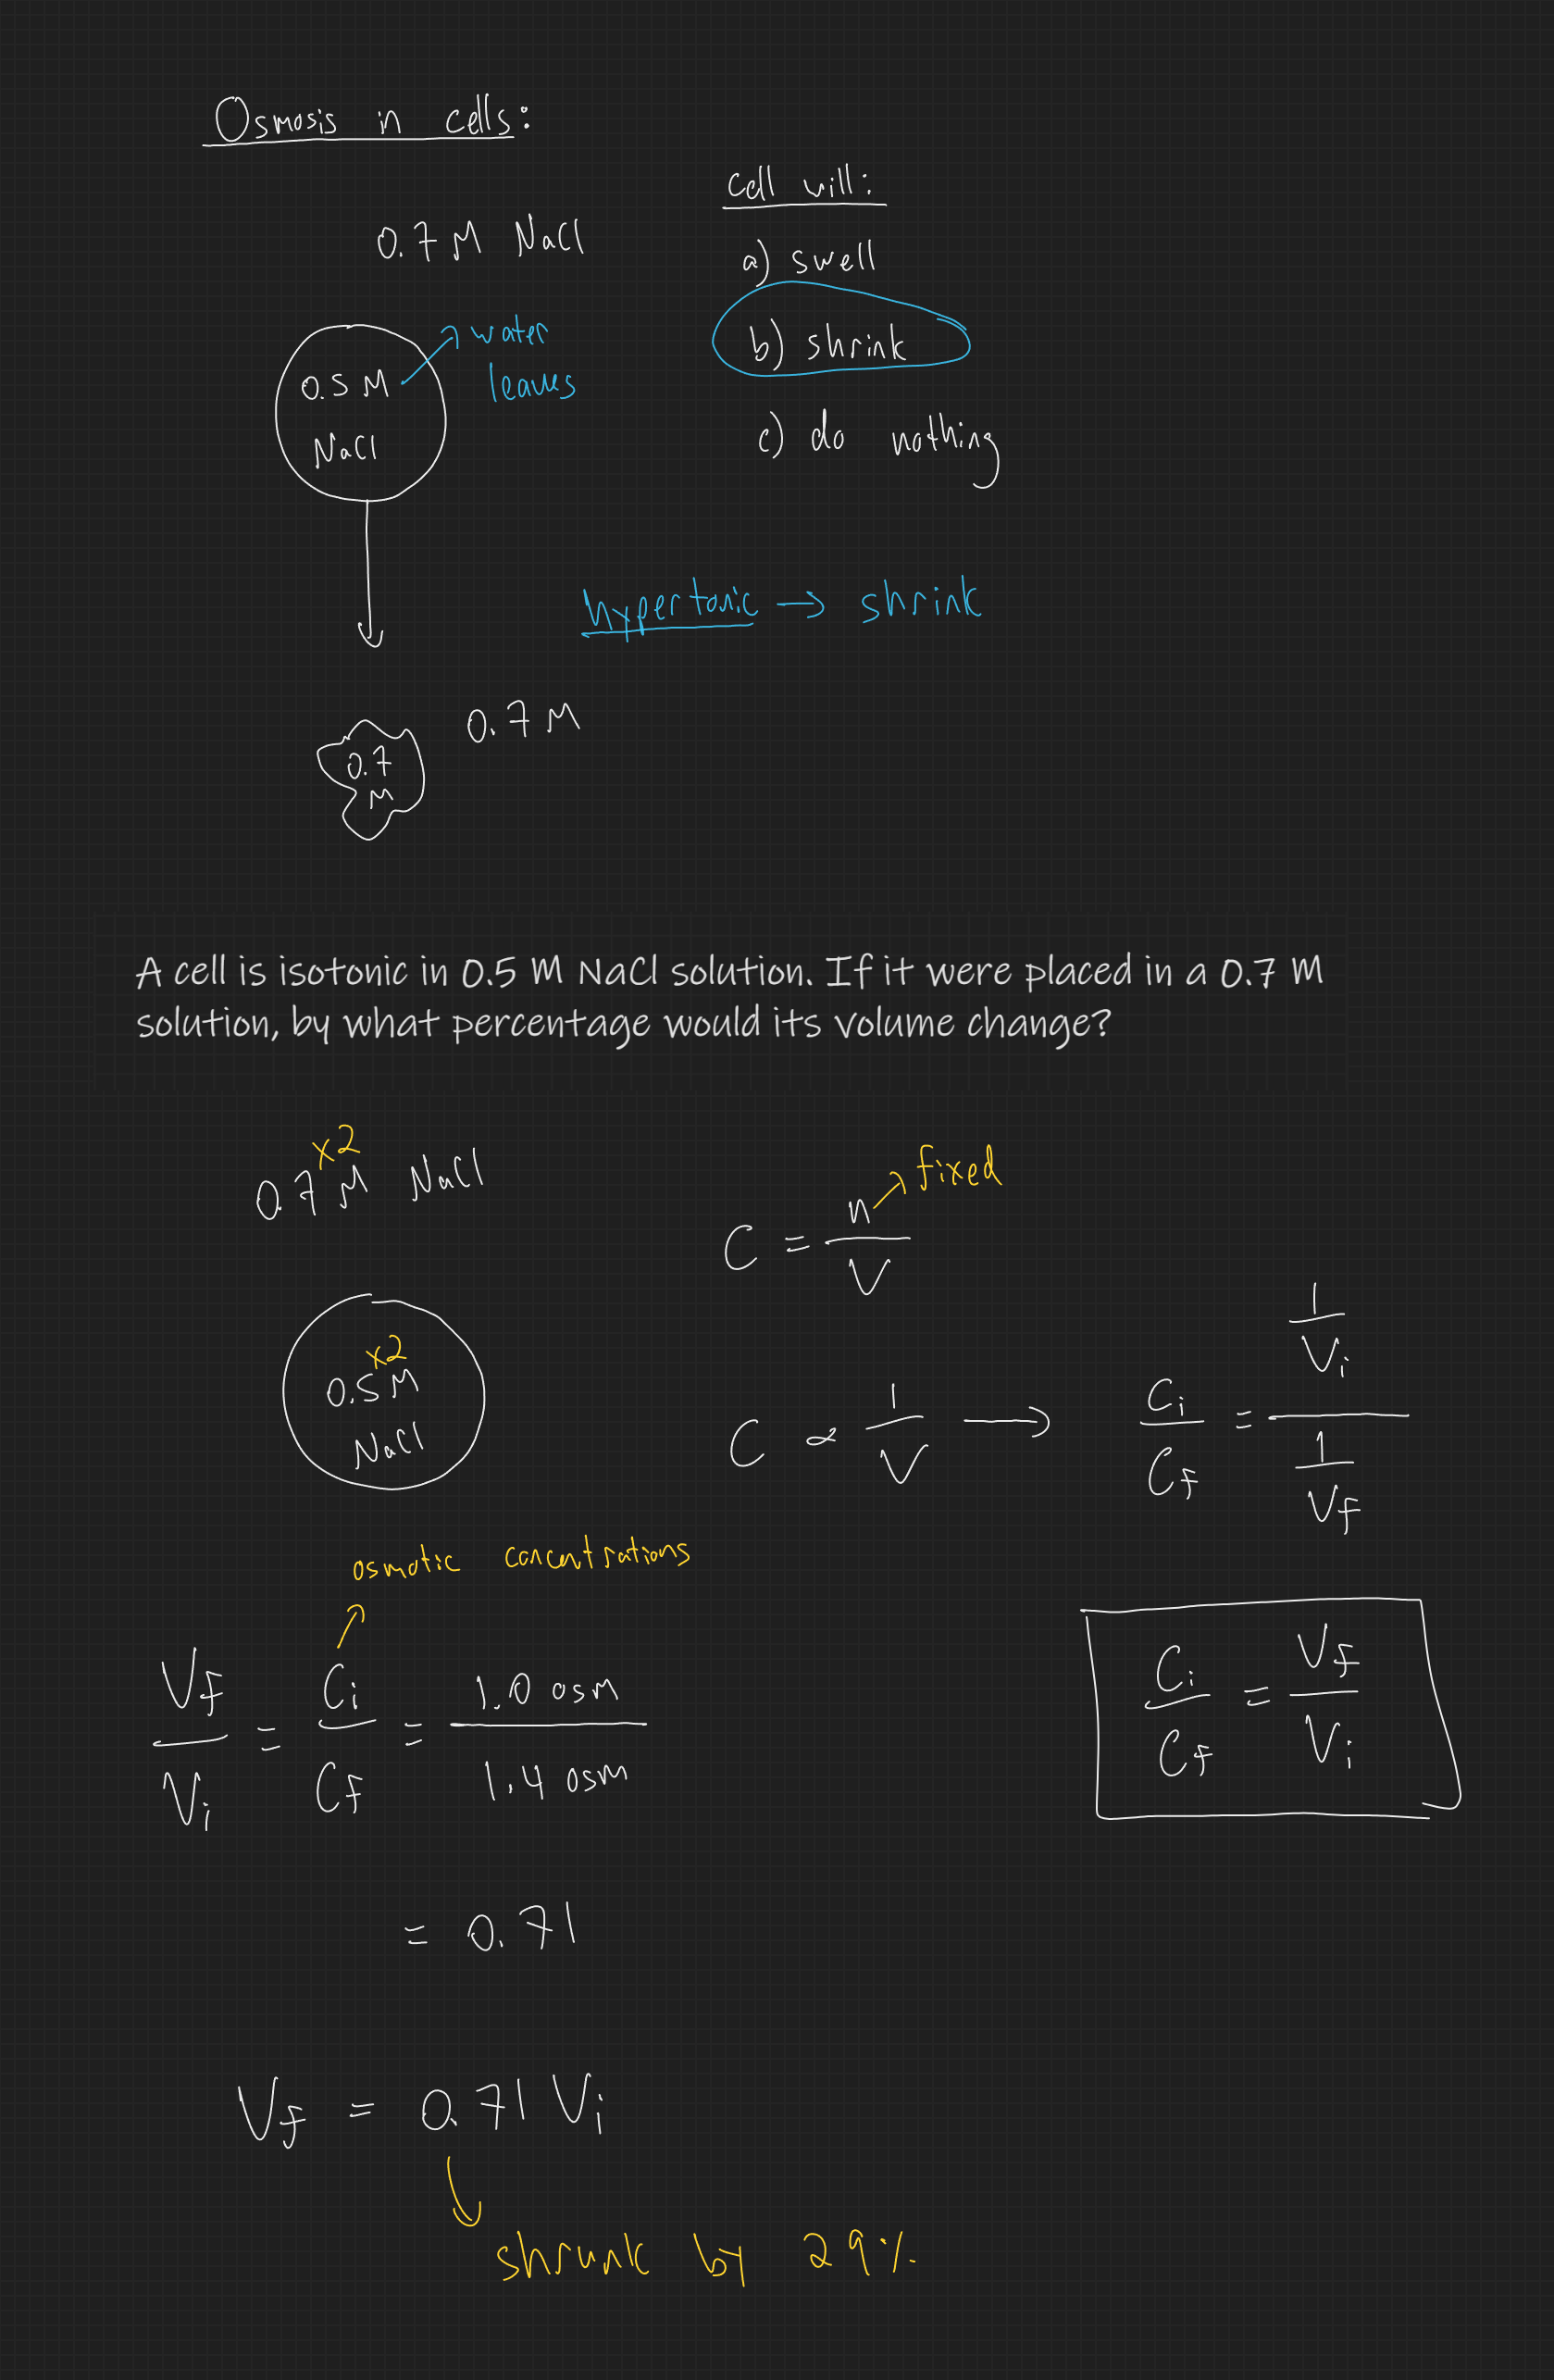 Osmosis in cells:
cell will:
0.7 M NaCl
a) swell
water
leaves
b) shrink
0.5 M
NaCl
c) do nothing
hypertonic → shrink
0.7 M
0.7
M
A cell is isotonic in 0.5 M NaCl solution. If it were placed in a 0.7 M
solution, by what percentage would its volume change?
x2
0.7 M NaCl
fixed
C = n/V
x2
0.5 M
NaCl
C ∝ 1/V → Ci/Cf = (1/Vi)/(1/Vf)
osmotic concentrations
Vf/Vi = Ci/Cf = 1.0 osm/1.4 osm
Ci/Cf = Vf/Vi
= 0.71
Vf = 0.71 Vi
shrunk by 29%